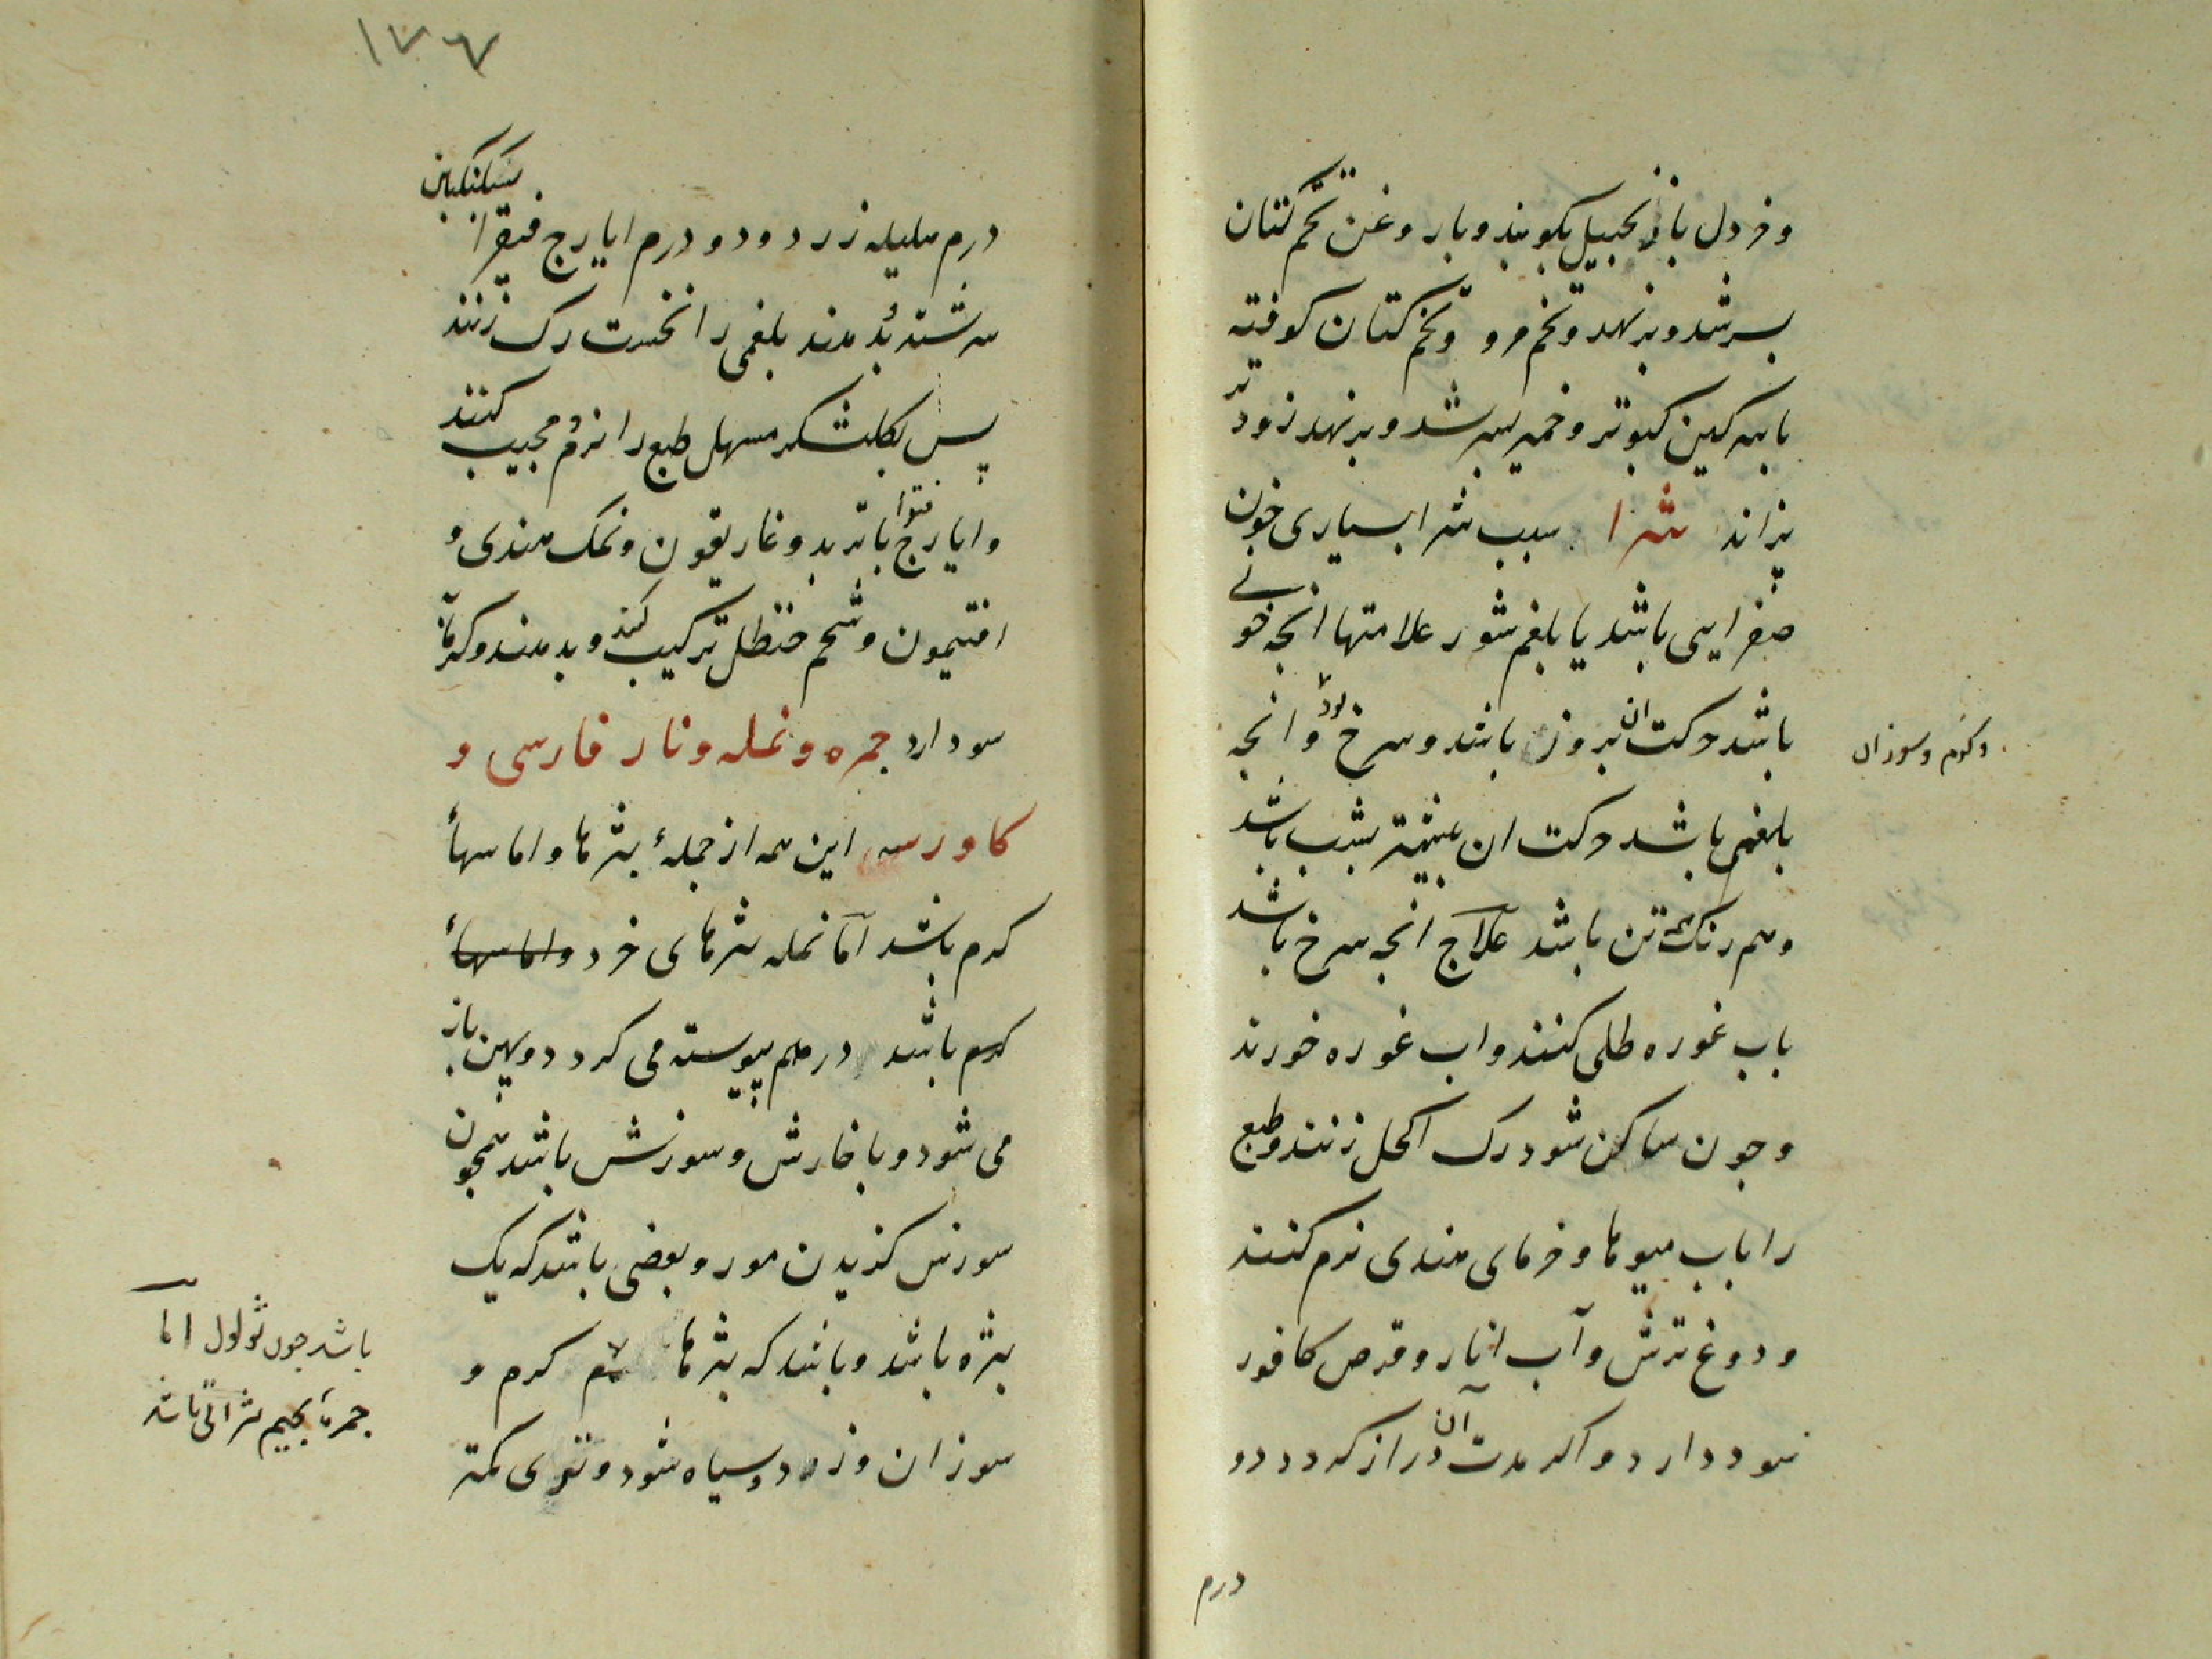 وخردل بازنجبیل بکوبند وبا روغن تخم کتان
بسرشد وبرنهد وتخم مرو وتخم کتان کوفته
با سرکین کبوتر وخمیر بسرشد وبرنهد زودتر
بزاند شرا سبب شرا بسیاری خون
صفرایی باشد یا بلغم شور علامتها انجه خونی
باشد حرکت ان بروز باشد وسرخ بود وانجه
وکرم وسوزان
بلغمی باشد حرکت ان بیشتر بشب باشد
وهم رنک تن باشد علاج انجه سرخ باشد
باب غوره طلی کنند واب غوره خورند
وجون ساکن شود رک اکحل زنند وطبع
را باب میوها وخرمای هندی نرم کنند
ودوغ ترش وآب انار وقرص کافور
سود دارد واکر مدت آن دراز کردد دو
درم
١٧٦
درم هلیله زرد ودو درم ایارج فیقرا
سکنکبین
سرشته بدهند بلغمی را نخست رک زنند
پس بکلشکر مسهل طبع را نرم مجیب کنند
وایارج فیقرا با تربد وغاریقون ونمک هندی و
افتیمون وشحم حنظل ترکیب کنند وبدهند وکرمابه
سود دارد جمره ونمله ونار فارسی و
کاورسه این همه از جملهٔ بثرها واماسهاء
کرم باشد اما نمله بثرهای خرد واماسهاء
کرم باشد درهم پیوسته می کردد وپهن باز
می شود وبا خارش وسوزش باشد همجون
سوزش کزیدن مور وبعضی باشد که یک
بثره باشد وباشد که بثرها کرم و
باشد جون ثولول اما
جمره بجیم بثراتی باشد
سوزان وزود وسیاه شود وتری کمتر